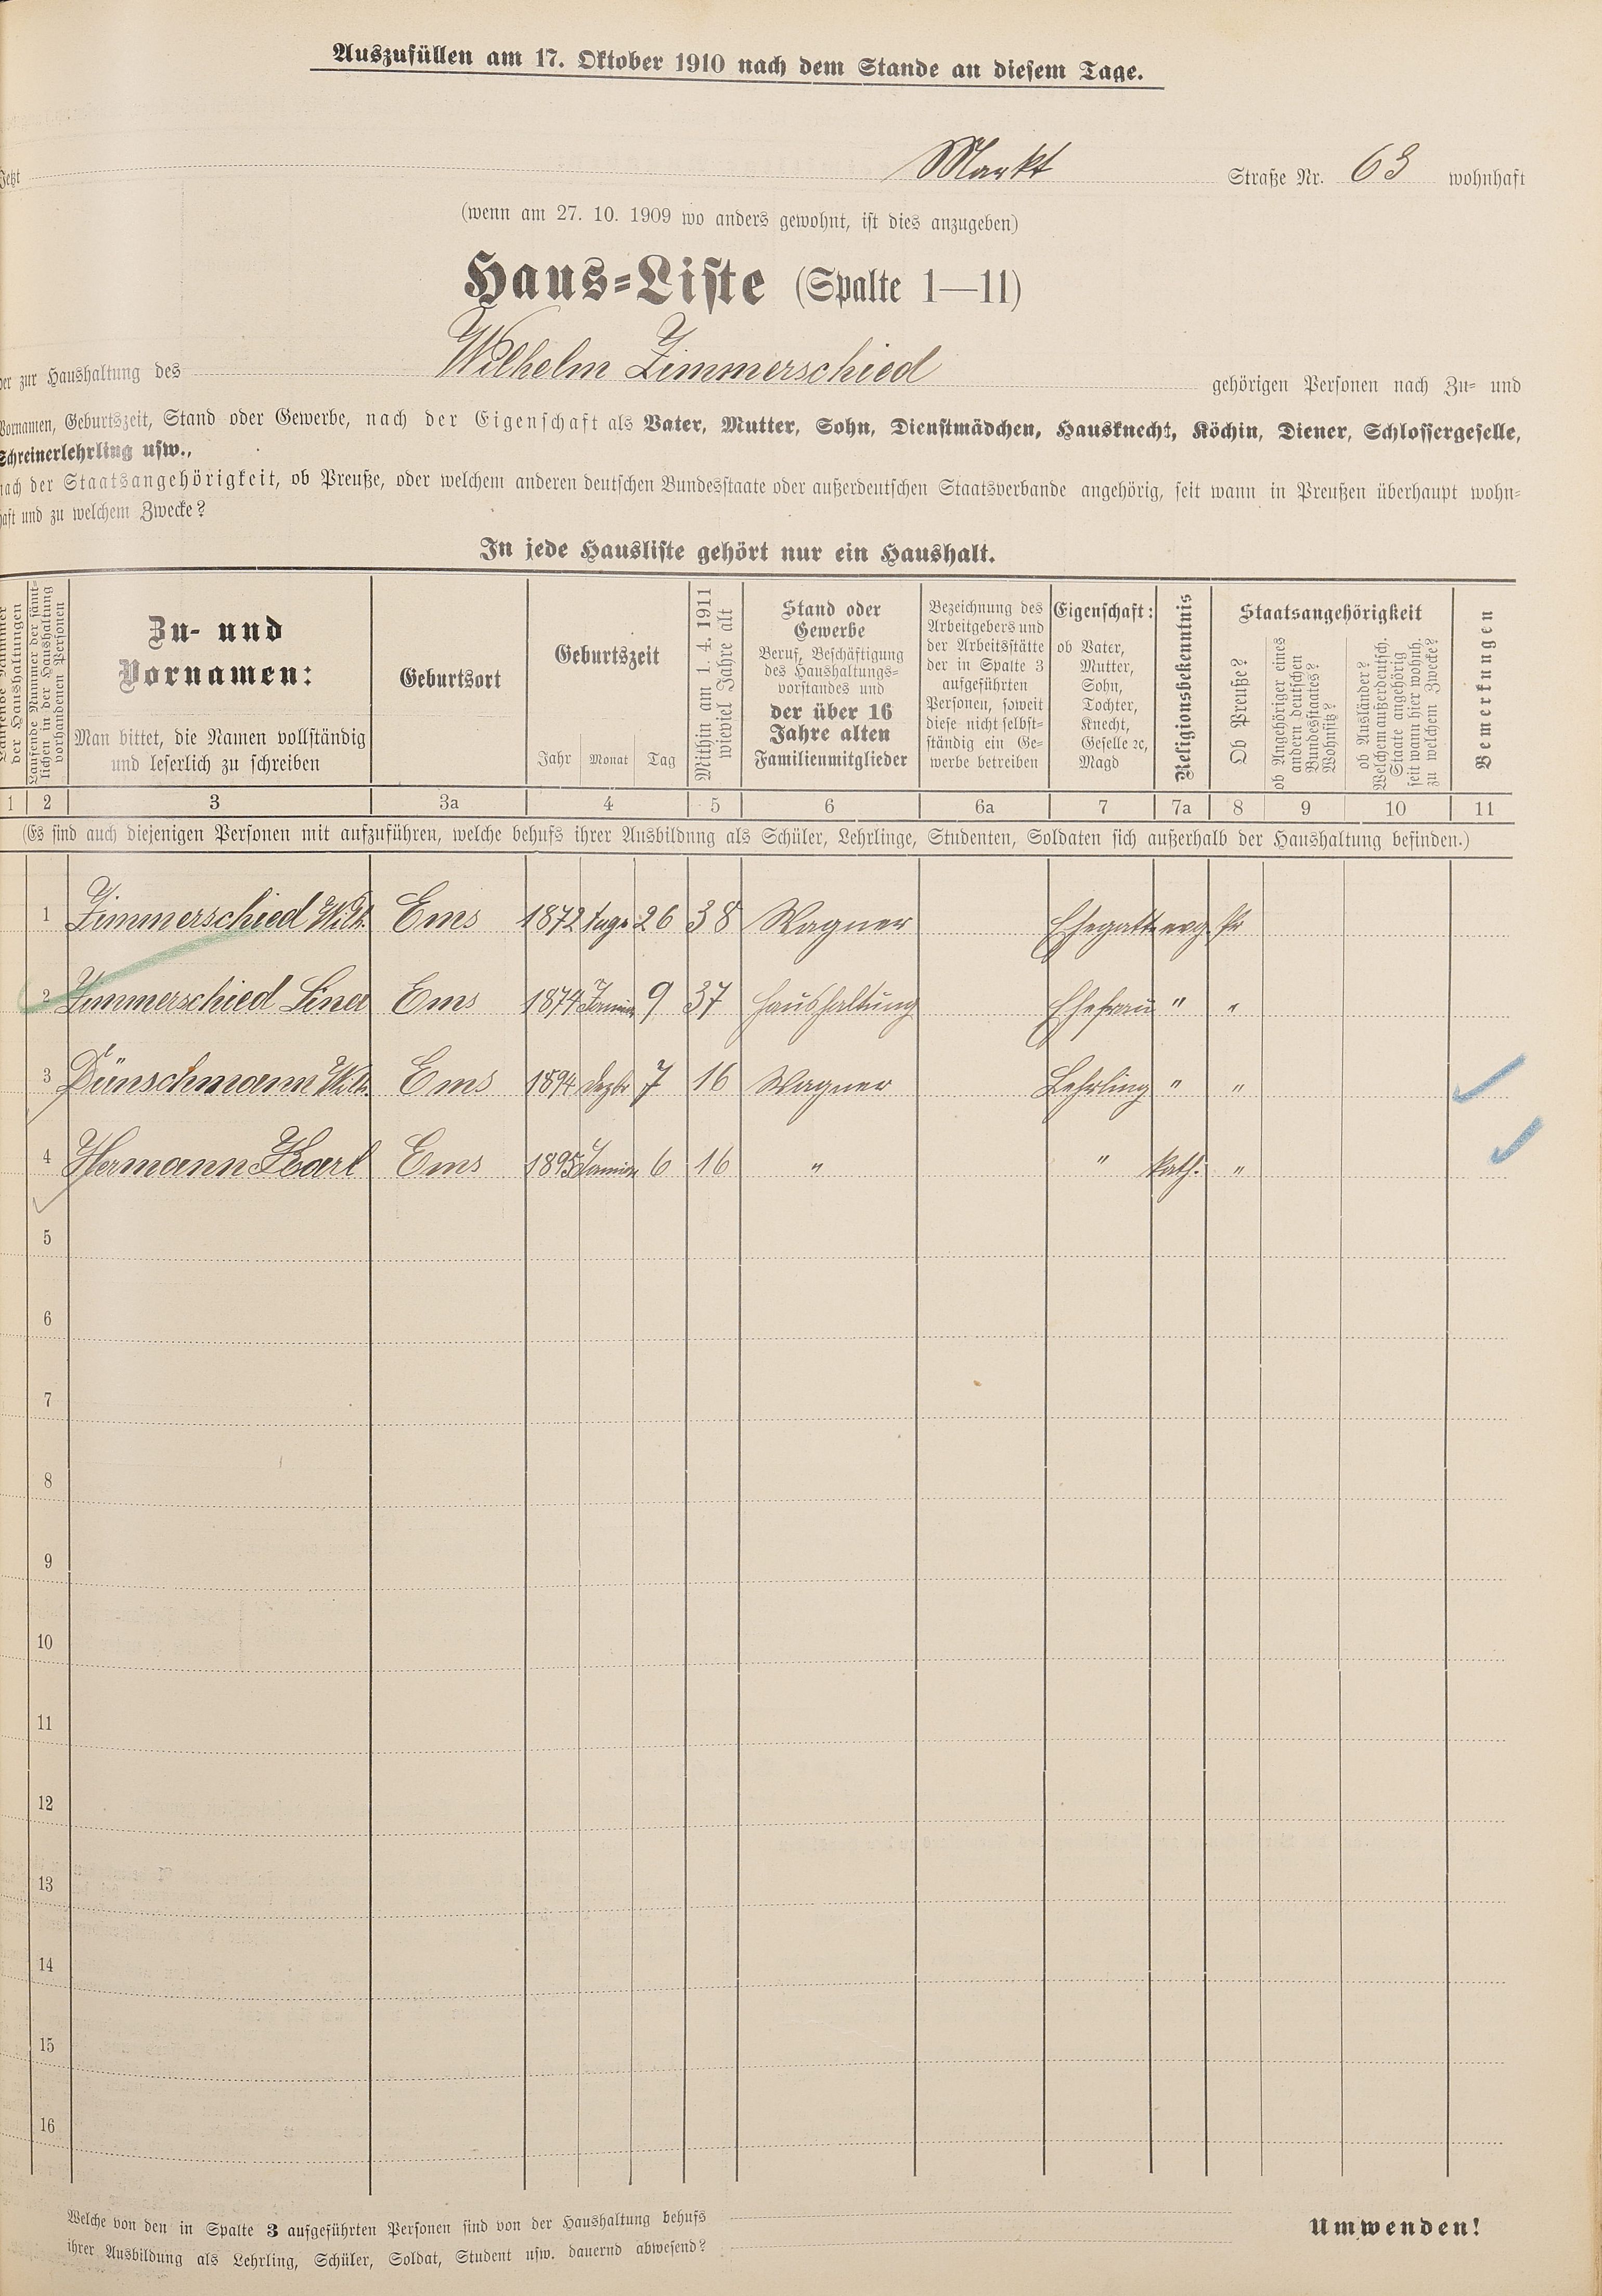 Auszufüllen am 17. Oktober 1910 nach dem Stande an diesem Tage.
Jetzt Markt Straße Nr. 63 wohnhaft
(wenn am 27. 10. 1909 wo anders gewohnt, ist dies anzugeben)
Haus-Liste (Spalte 1—11)
der zur Haushaltung des Wilhelm Zimmerschied gehörigen Personen nach Zu- und
Vornamen, Geburtszeit, Stand oder Gewerbe, nach der Eigenschaft als Vater, Mutter, Sohn, Dienstmädchen, Hausknecht, Köchin, Diener, Schlossergeselle,
Schreinerlehrling usw.,
nach der Staatsangehörigkeit, ob Preuße, oder welchem anderen deutschen Bundesstaate oder außerdeutschen Staatsverbande angehörig, seit wann in Preußen überhaupt wohn-
haft und zu welchem Zwecke?
In jede Hausliste gehört nur ein Haushalt.
Laufende Nummer
der Haushaltungen
Laufende Nummer der sämt-
lichen in der Haushaltung
vorhandenen Personen
Zu- und
Vornamen:
Man bittet, die Namen vollständig
und leserlich zu schreiben
Geburtsort
Geburtszeit
Jahr Monat Tag
Mithin am 1. 4. 1911
wieviel Jahre alt
Stand oder
Gewerbe
Beruf, Beschäftigung
des Haushaltungs-
vorstandes und
der über 16
Jahre alten
Familienmitglieder
Bezeichnung des
Arbeitgebers und
der Arbeitsstätte
der in Spalte 3
aufgeführten
Personen, soweit
diese nicht selbst-
ständig ein Ge-
werbe betreiben
Eigenschaft:
ob Vater,
Mutter,
Sohn,
Tochter,
Knecht,
Geselle ꝛc,
Magd
Religionsbekenntnis
Staatsangehörigkeit
Ob Preuße?
ob Angehöriger eines
andern deutschen
Bundesstaates?
Wohnsitz?
ob Ausländer?
Welchem außerdeutsch.
Staate angehörig
seit wann hier wohnh.
zu welchem Zwecke?
Bemerkungen
1 2 3 3a 4 5 6 6a 7 7a 8 9 10 11
(Es sind auch diejenigen Personen mit aufzuführen, welche behufs ihrer Ausbildung als Schüler, Lehrlinge, Studenten, Soldaten sich außerhalb der Haushaltung befinden.)
1 Zimmerschied Wilh. Ems 1872 26 38 Wagner Ehegatte evg. Pr
2 Zimmerschied Lina Ems 1874 Januar 9 37 Haushaltung Ehefrau " "
3 Dünschmann Wilh. Ems 1894 Dezbr 7 16 Wagner Lehrling " "
4 Hermann Karl Ems 1895 Januar 6 16 " " kath. "
5
6
7
8
9
10
11
12
13
14
15
16
Welche von den in Spalte 3 aufgeführten Personen sind von der Haushaltung behufs
ihrer Ausbildung als Lehrling, Schüler, Soldat, Student usw. dauernd abwesend?
Umwenden!